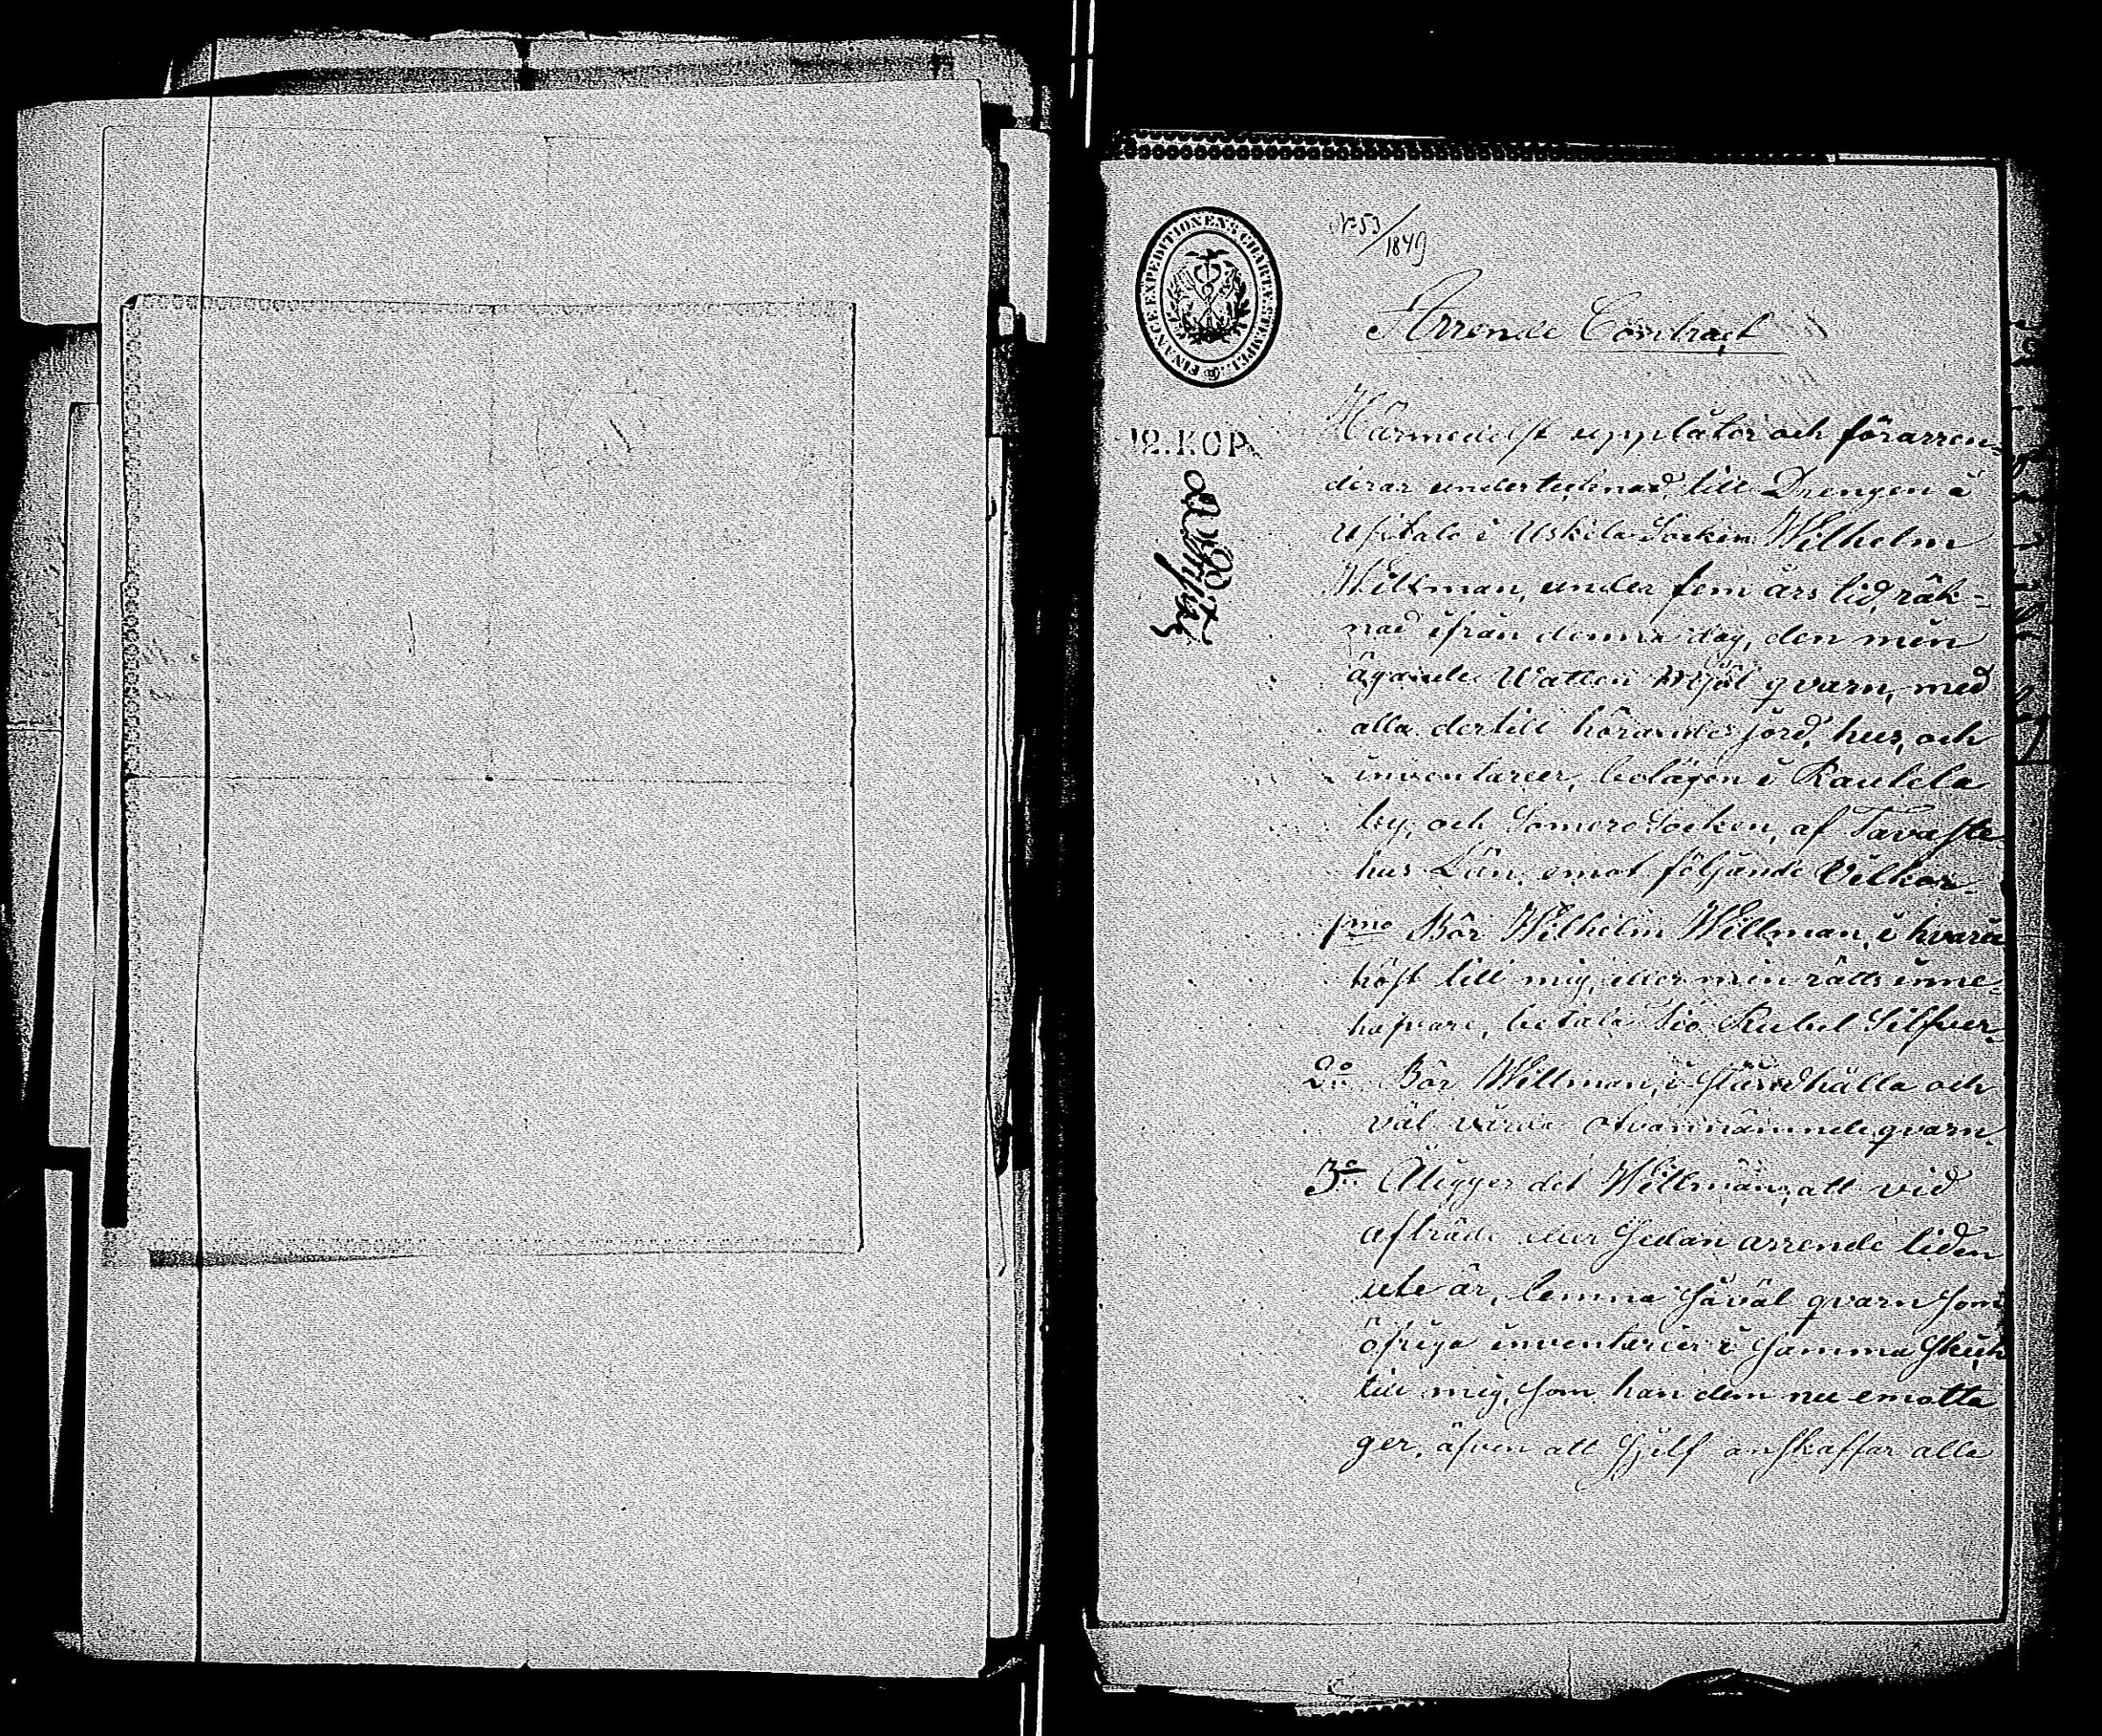 No 53/1849
FINANCE EXPEDITIONENS CHARTÆ STEMPEL
Arrende Contract
12. KOP.
Härmedelst upplåter och förarren-
derar undertecknad, till Drengen i
Ufitalo i Uskela Socken Wilhelm
Willman, under fem års tid, räk-
nad ifrån denna dag, den min
ägande Watten Mjöl qvarn, med
alla dertill hörande jord, hus, och
inventarier, belägen i Rautela
by, och Somero Socken, af Tavaste
hus Län, emot följande Vilkor.
1mo Bör Wilhelm Willman, i hvarje
höst till mig, eller min rätts inne-
hafvare, betala Tio Rubel Silfver
2o Bör Willman, i Ståndhålla och
väl vårda ofvannämnde qvarn.
3o Åligger det Willman, att vid
afträde eller Sedan arrende tiden
ute är, lemna Såväl qvarn Som
öfriga inventarier i Samma Skick
till mig, Som han dem nu emotta
ger, äfven att Sjelf anskaffar alla